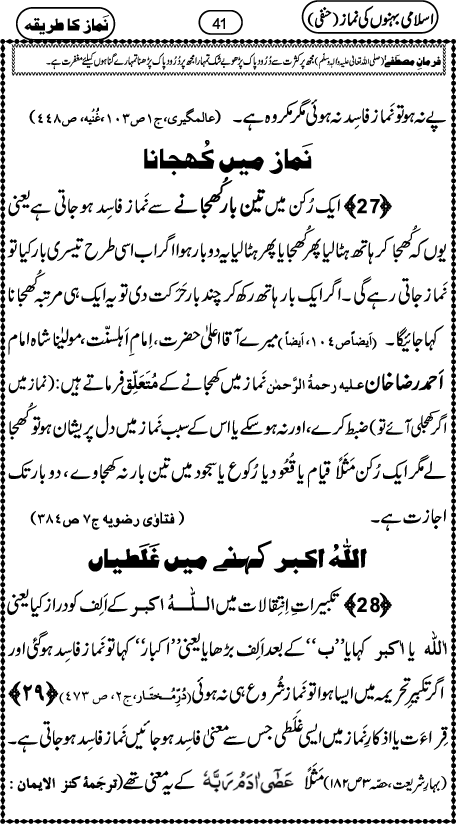 اسلامی بہنوں کی نماز (حنفی) 41 نماز کا طریقہ
فرمانِ مصطفےٰ (صلی اللہ تعالیٰ علیہ والہٖ وسلّم) مجھ پر کثرت سے دُرُودِ پاک پڑھو بے شک تمہارا مجھ پر دُرُودِ پاک پڑھنا تمہارے گناہوں کیلئے مغفرت ہے۔
پے نہ ہو تو نَماز فاسِد نہ ہوئی مگر مکروہ ہے۔ (عالمگیری، ج۱ ص۱۰۳، غُنیہ، ص۴۴۸)
نَماز میں کُھجانا
﴿27﴾ ایک رُکن میں تین بار کُھجانے سے نَماز فاسِد ہو جاتی ہے یعنی
یوں کہ کُھجا کر ہاتھ ہٹا لیا پھر کُھجایا پھر ہٹا لیا یہ دو بار ہوا اگر اب اسی طرح تیسری بار کیا تو
نَماز جاتی رہے گی۔ اگر ایک بار ہاتھ رکھ کر چند بار حَرَکت دی تو یہ ایک ہی مرتبہ کُھجانا
کہا جائیگا۔ (اَیضاً ص۱۰۴، اَیضاً) میرے آقا اعلیٰ حضرت، اِمامِ اَہلسنّت، مولیٰنا شاہ امام
اَحمد رضا خان علیہ رحمۃُ الرَّحمٰن نَماز میں کُھجانے کے مُتَعَلِّق فرماتے ہیں: (نَماز میں
اگر کُھجلی آئے تو) ضبط کرے، اور نہ ہو سکے یا اس کے سبب نَماز میں دل پریشان ہو تو کُھجا
لے مگر ایک رُکن مَثَلاً قیام یا قُعُود یا رُکوع یا سجود میں تین بار نہ کھجاوے، دو بار تک
اجازت ہے۔ (فتاوٰی رضویہ ج۷ ص۳۸۴)
اَللہُ اکبر کہنے میں غَلَطیاں
﴿28﴾ تکبیراتِ اِنتِقالات میں اَللہُ اکبر کے اَلِف کو دراز کیا یعنی
آللہ یا آکبر کہا یا ”ب“ کے بعد اَلِف بڑھایا یعنی ”اکبار“ کہا تو نَماز فاسِد ہو گئی اور
اگر تکبیرِ تحریمہ میں ایسا ہوا تو نَماز شُروع ہی نہ ہوئی (دُرِّمُختار، ج۲، ص ۴۷۳) ﴿۲۹﴾
قِراءَت یا اذکارِ نَماز میں ایسی غَلَطی جس سے معنیٰ فاسِد ہو جائیں نَماز فاسِد ہو جاتی ہے۔
(بہارِ شریعت، حصّہ ۳ ص۱۸۲) مَثَلاً عَصٰۤی اٰدَمُ رَبَّہٗ کے یہ معنی تھے (ترجَمۂ کنز الایمان: